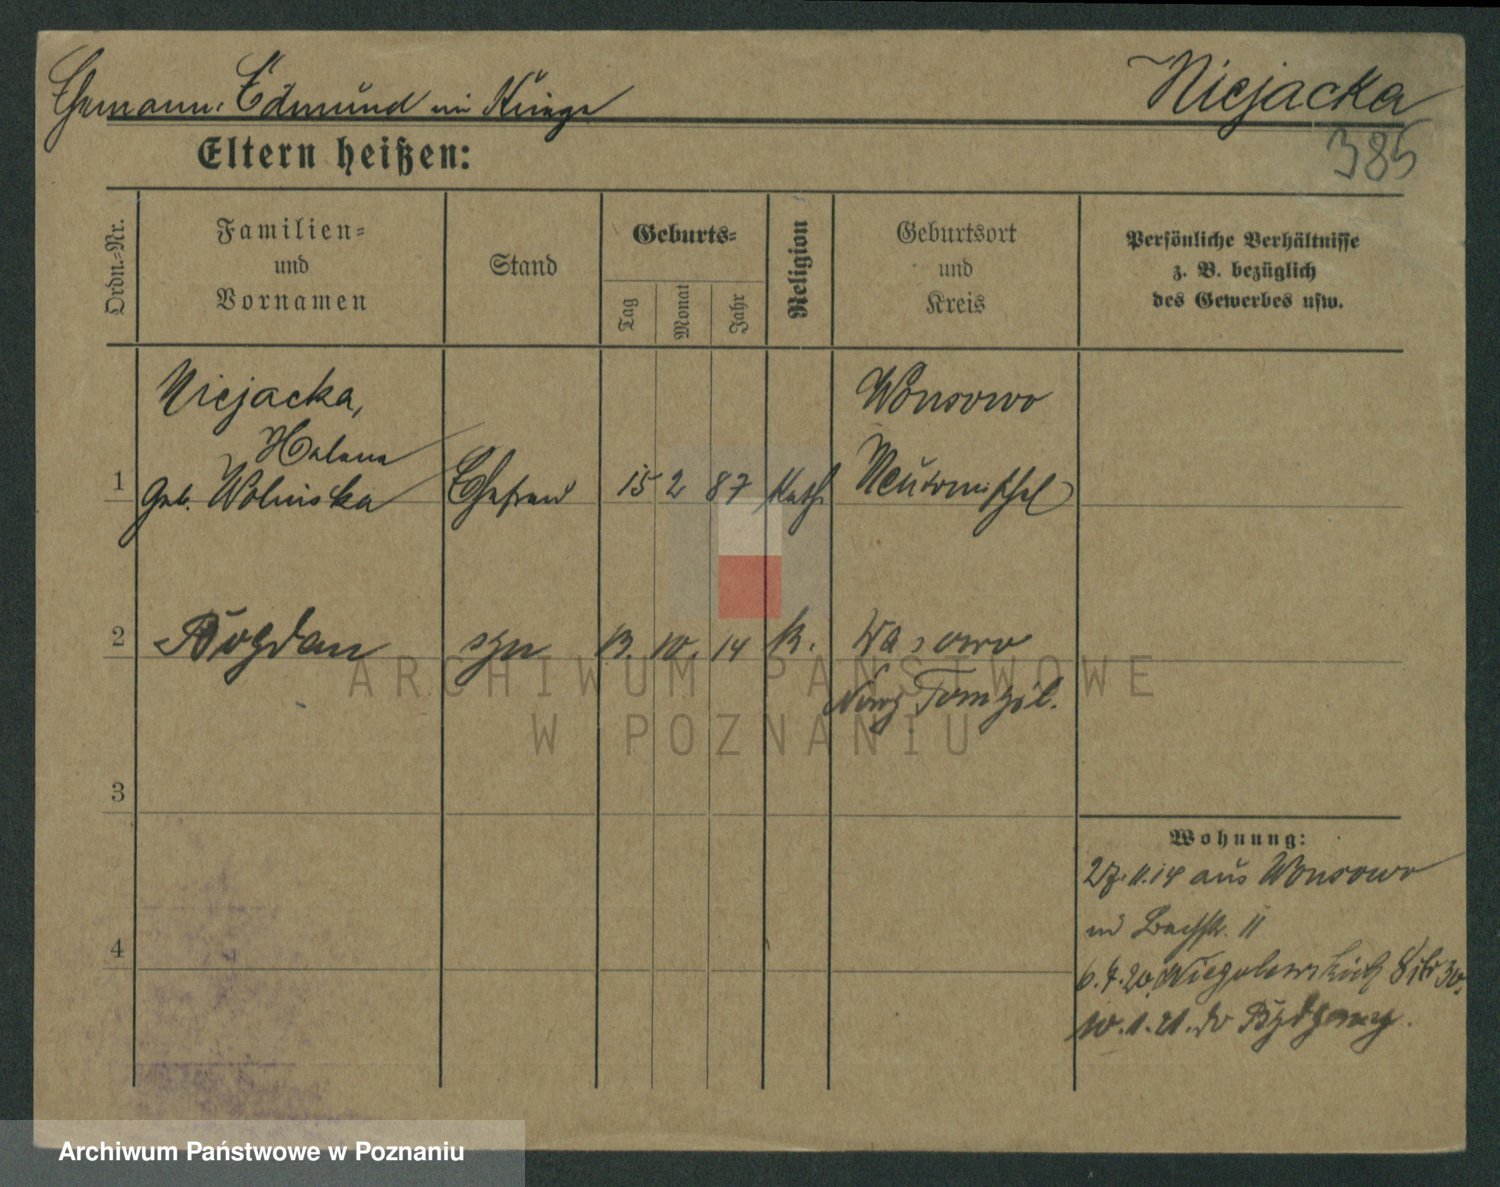 Ehemann: Edmund im Kriege
Niejacka
385
Eltern heißen:
Ordn.-Nr.
Familien-
und
Vornamen
Stand
Geburts-
Tag
Monat
Jahr
Religion
Geburtsort
und
Kreis
Persönliche Verhältnisse
z. B. bezüglich
des Gewerbes usw.
1
Niejacka,
Helena
geb. Wolinska
Ehefrau
15
2
87
kath.
Wonsowo
Neutomischel
2
Bogdan
syn
13.
10.
14
k.
Wąsowo
Nowy Tomyśl.
3
4
Wohnung:
27.11.14 aus Wonsowo
in Bachstr. 11
6.7.20. Niegolewskich 8 30.
10.1.21. do Bydgoszczy.
ARCHIWUM PAŃSTWOWE
W POZNANIU
Archiwum Państwowe w Poznaniu